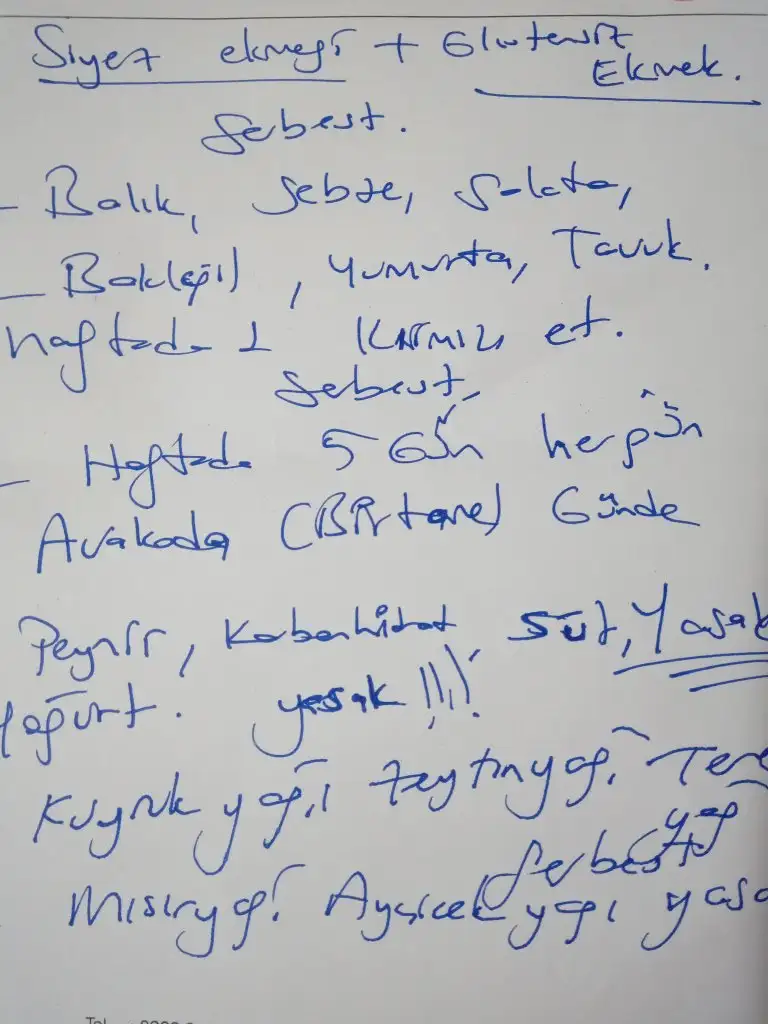 Siyez ekmeği + Glutensiz
Ekmek.
Serbest.
- Balık, Sebze, Salata,
- Baklagil, Yumurta, Tavuk.
haftada 1 Kırmızı et.
Serbest,
- Haftada 5 Gün hergün
Avakado (BİR tane) Günde
Peynir, Karbonhidrat Süt, Yasak
Yoğurt. yasak !!!!
Kuyruk yağı zeytinyağı Tere
yağ
Serbest
Mısıryağı Ayçicek yağı yasa